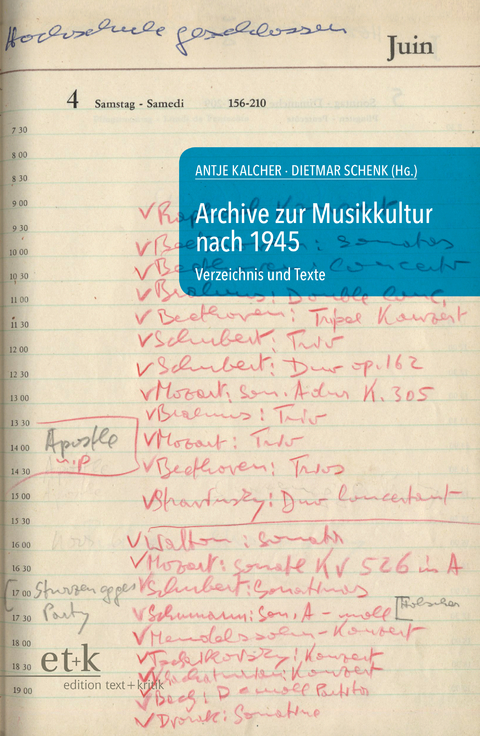 Hochschule geschlossen
Juin
4 Samstag - Samedi 156-210
7 30
8 00
8 30
9 00
9 30
10 00
10 30
11 00
11 30
12 00
12 30
13 00
13 30
14 00
14 30
15 00
15 30
16 00
16 30
17 00
17 30
18 00
18 30
19 00
ANTJE KALCHER · DIETMAR SCHENK (Hg.)
Archive zur Musikkultur
nach 1945
Verzeichnis und Texte
✓ Beethoven: Sonatas
✓ Brahms: Double Conc.
✓ Beethoven: Tripel Konzert
✓ Schubert: Trio
✓ Schubert: Duo op. 162
✓ Mozart: Son. A dur K. 305
✓ Brahms: Trio
✓ Mozart: Trio
✓ Beethoven: Trios
✓ Stravinsky: Duo Concertant
✓ Walton: Sonata
✓ Mozart: Sonate KV 526 in A
✓ Schubert: Sonatinas
✓ Schumann: Son. A-moll
✓ Mendelssohn-Konzert
✓ Tschaikovsky: Konzert
✓ Khachaturian: Konzert
✓ Bach: D-moll Partita
✓ Dvorak: Sonatine
Apostle
Party
et+k
edition text+kritik